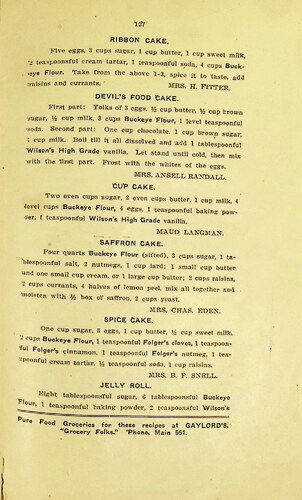 127
RIBBON CAKE.
Five eggs, 3 cups sugar, 1 cup butter, 1 cup sweet milk,
2 teaspoonsful cream tartar, 1 teaspoonful soda, 4 cups Buck-
eye Flour. Take from the above 1-3, spice it to taste, add
raisins and currants.
MRS. H. FITTER.
DEVIL'S FOOD CAKE.
First part: Yolks of 3 eggs, ½ cup butter, ½ cup brown
sugar, ½ cup milk, 3 cups Buckeye Flour, 1 level teaspoonful
soda. Second part: One cup chocolate, 1 cup brown sugar,
1 cup milk. Boil till it all dissolved and add 1 tablespoonful
Wilson's High Grade vanilla. Let stand until cold, then mix
with the first part. Frost with the whites of the eggs.
MRS. ANSELL RANDALL.
CUP CAKE.
Two even cups sugar, 2 even cups butter, 1 cup milk, 4
level cups Buckeye Flour, 4 eggs, 1 teaspoonful baking pow-
der, 1 teaspoonful Wilson's High Grade vanilla.
MAUD LANGMAN.
SAFFRON CAKE.
Four quarts Buckeye Flour (sifted), 3 cups sugar, 1 ta-
blespoonful salt, 2 nutmegs, 1 cup lard; 1 small cup butter
and one small cup cream, or 1 large cup butter; 2 cups raisins,
2 cups currants, 4 halves of lemon peel, mix all together and
moisten with ½ box of saffron, 2 cups yeast.
MRS. CHAS. EDEN.
SPICE CAKE.
One cup sugar, 3 eggs, 1 cup butter, ½ cup sweet milk,
2 cups Buckeye Flour, 1 teaspoonful Folger's cloves, 1 teaspoon-
ful Folger's cinnamon, 1 teaspoonful Folger's nutmeg, 1 tea-
spoonful cream tartar, ½ teaspoonful soda, 1 cup raisins.
MRS. B. F. SNELL.
JELLY ROLL.
Eight tablespoonsful sugar, 6 tablespoonsful Buckeye
Flour, 1 teaspoonful baking powder, 2 teaspoonful Wilson's
Pure Food Groceries for these recipes at GAYLORD'S,
"Grocery Folks." 'Phone, Main 551.